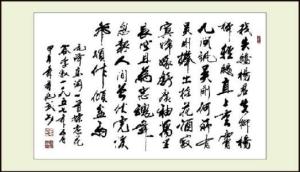 我失驕楊君失柳楊
柳輕颺直上重霄
九問訊吳剛何所有
吳剛捧出桂花酒
寂寞嫦娥舒廣袖萬里
長空且為忠魂舞
忽報人間曾伏虎淚
飛頓作傾盆雨
毛澤東詞一首蝶戀花
答李淑一一九五七年五月
甲午年